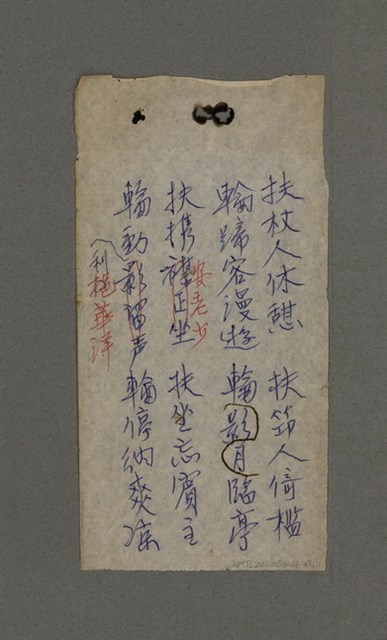 扶杖人休憩 扶笻人倚檻
輪蹄客漫遊 輪影月臨亭
扶携襟正坐 扶坐忘賓主
安老少
輪動影留声 輪停納爽涼
利艳華洋